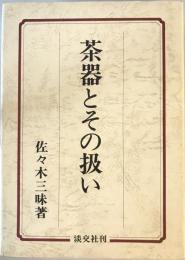 茶器とその扱い
佐々木三味著
淡交社刊